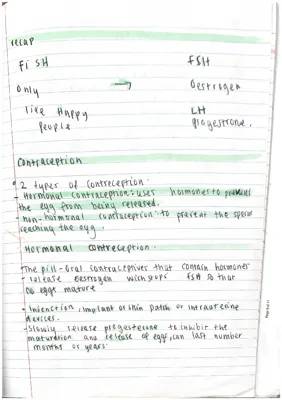 recap
FiSH → FSH
only Oestrogen
live Happy LH
people progestrone.
Contraception
2 types of contreception.
- Hormonal contraception: uses hormones to prevent
the egg from being released.
- non-hormonal contraception: to prevent the sperm
reaching the egg.
Hormonal contreception.
The pill - Oral contraceptives that contain hormones
- release Oestrogen which stops FSH so that
no eggs mature
- Injenction, implant or skin patch or intrauterine
devices.
- Slowly release progesterone to inhibit the
maturation and release of eggs, can last number
months or years.